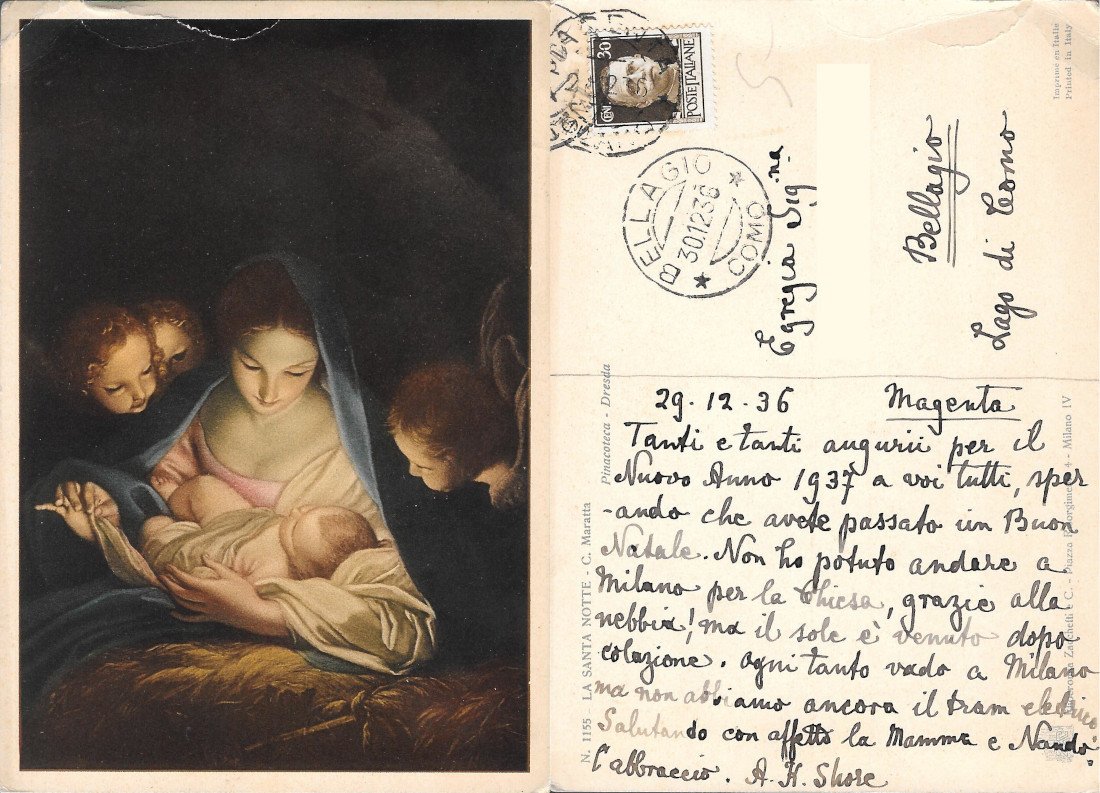 30
CENT
POSTE ITALIANE
BELLAGIO
30.12.36
COMO
Imprimé en Italie
Printed in Italy
Egregia Sig.na
Bellagio
Lago di Como
29-12-36 Magenta
Tanti e tanti augurii per il
Nuovo Anno 1937 a voi tutti, sper
-ando che avete passato un Buon
Natale. Non ho potuto andare a
Milano per la Chiesa, grazie alla
nebbia! ma il sole è venuto dopo
colazione. Ogni tanto vado a Milano
ma non abbiamo ancora il tram elettrico
Salutando con affetto la Mamma e Nando
l'abbraccio. A. H. Shore
N. 1155 - LA SANTA NOTTE - C. Maratta
Pinacoteca - Dresda
C. - Piazza 4 - Milano IV